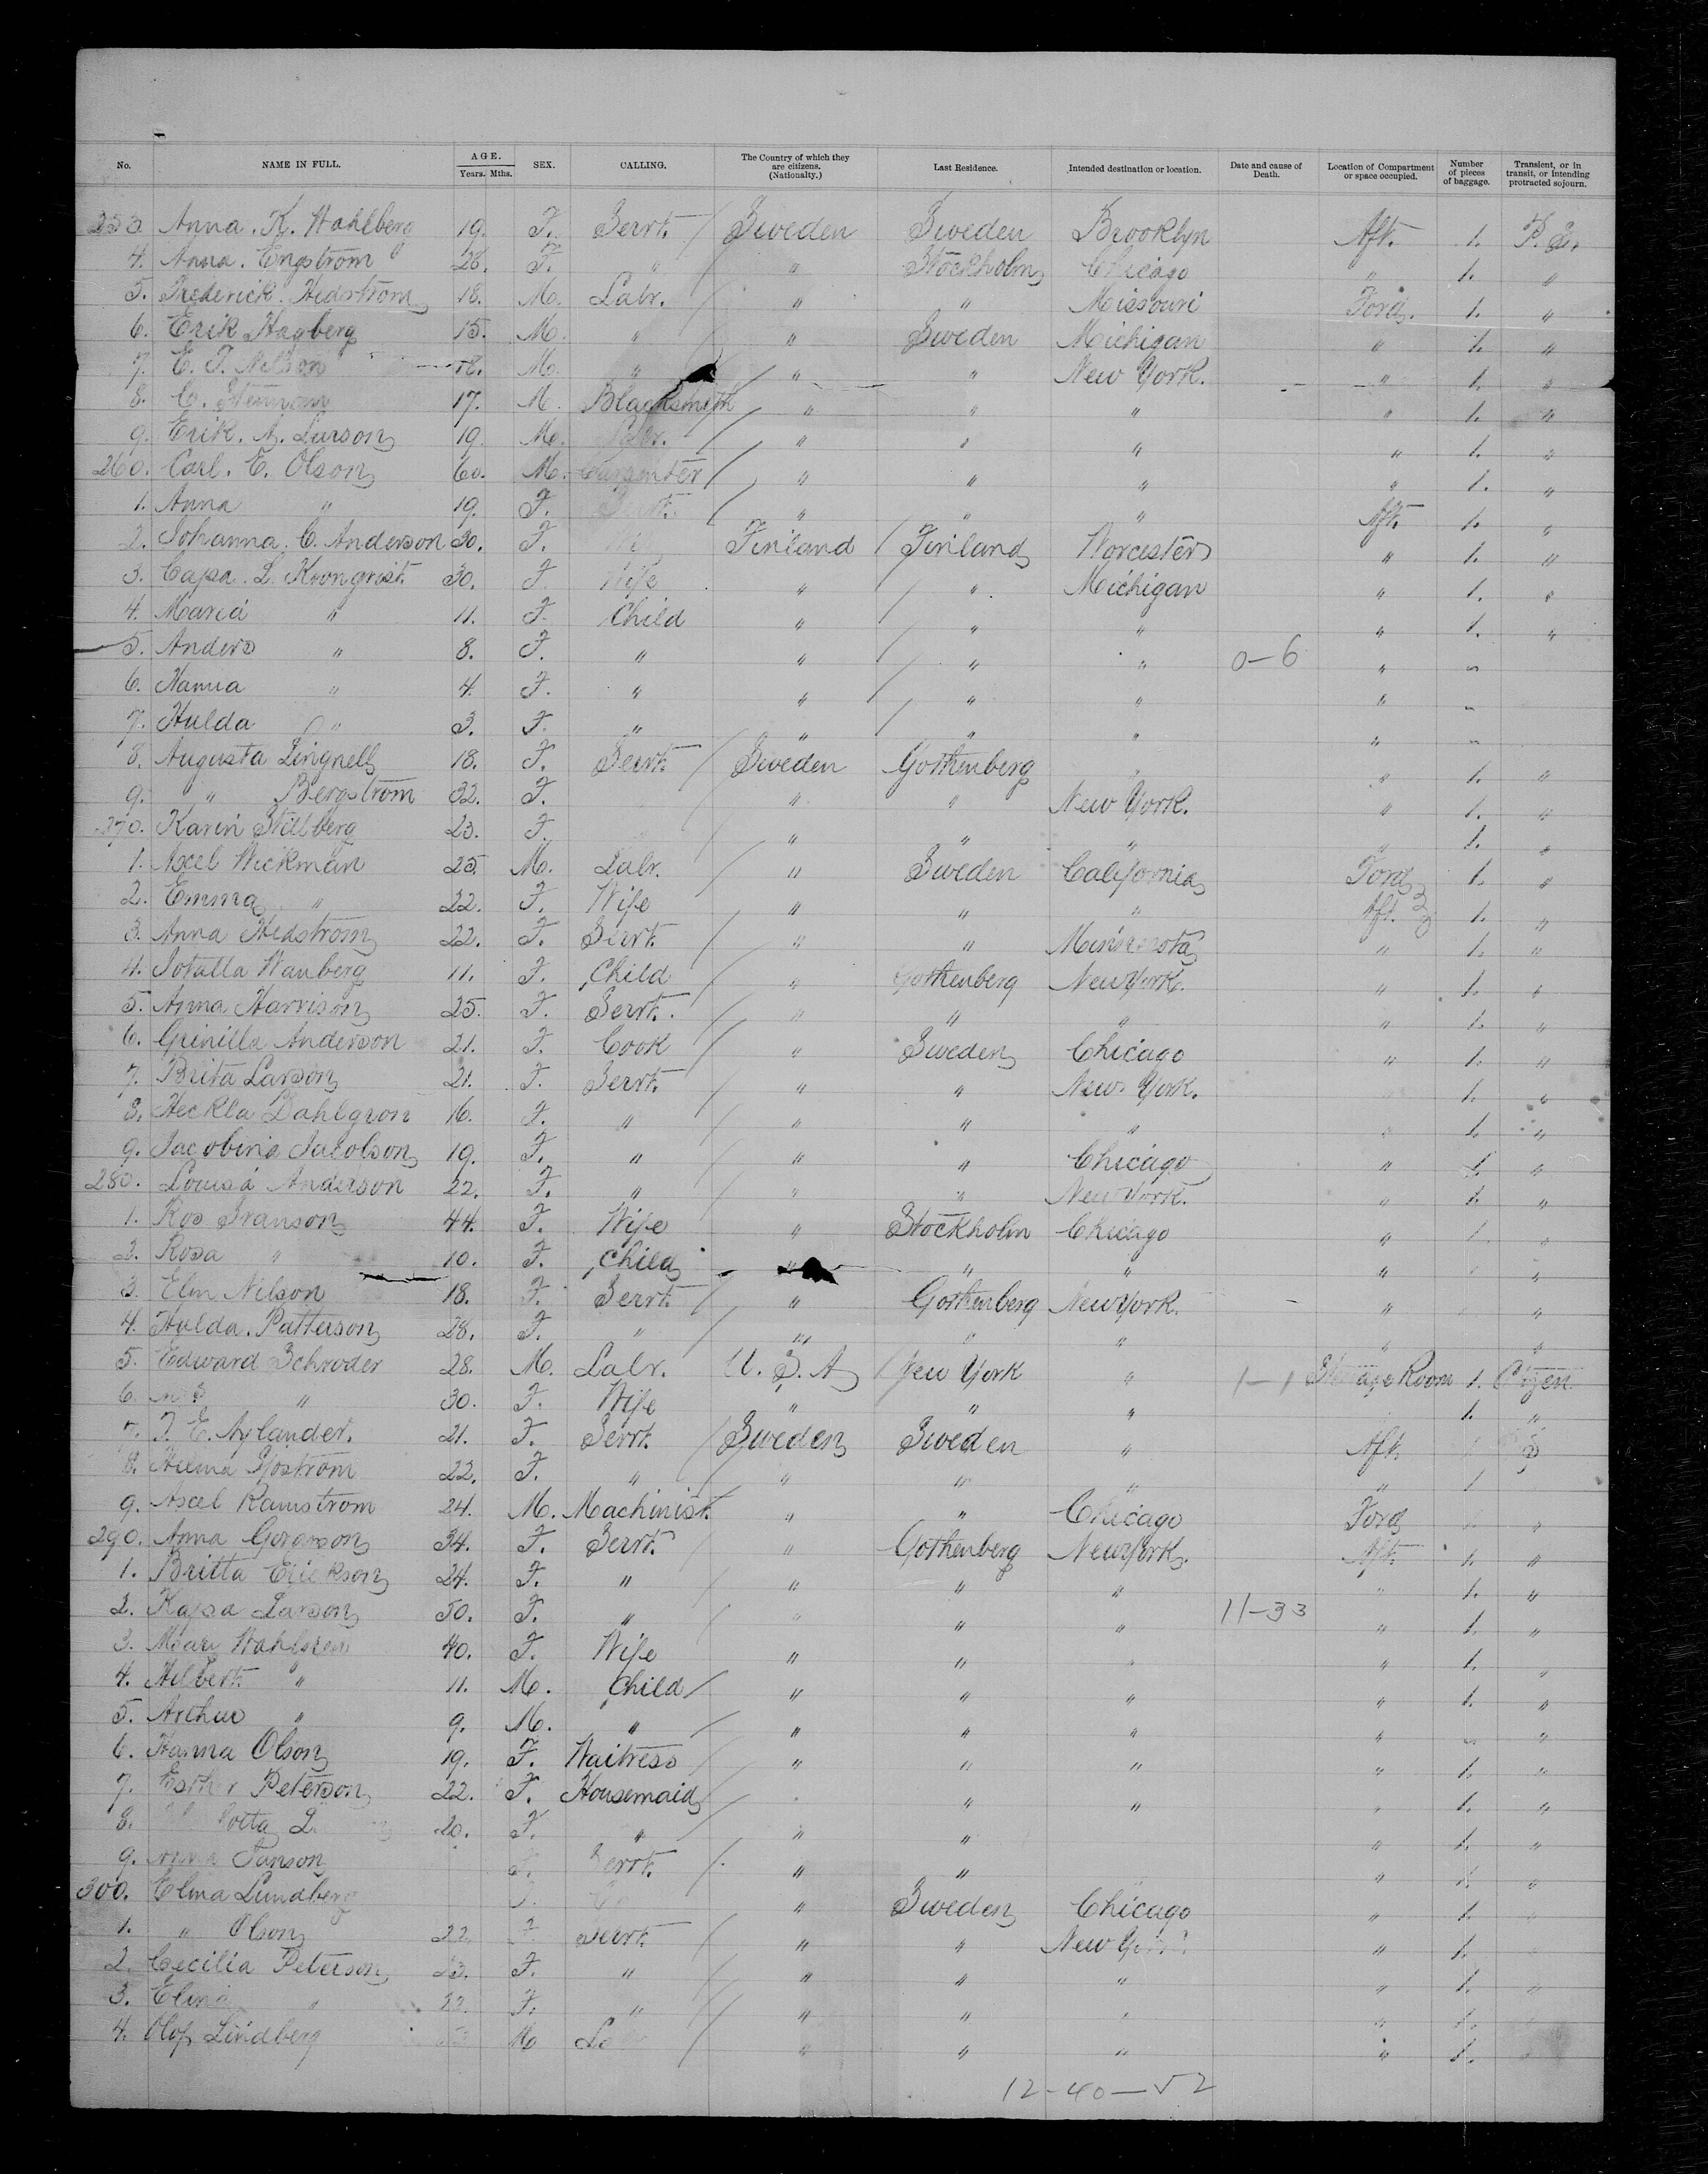 No. NAME IN FULL. AGE. Years. Mths. SEX. CALLING. The Country of which they are citizens. (Nationalty.) Last Residence. Intended destination or location. Date and cause of Death. Location of Compartment or space occupied. Number of pieces of baggage. Transient, or in transit, or intending protracted sojourn.
253 Anna. K. Wahlberg 19. F. Servt. Sweden Sweden Brooklyn Aft. 1. P. S.
4. Anna. Engstrom 26. F. " " Stockholm Chicago " 1. "
5. Frederick. Hedstrom 18. M. Labr. " " Missouri Ford. 1. "
6. Erik Hagberg 15. M. " " Sweden Michigan " 1. "
7. E. F. Nelson 18. M. " " " New York. " 1. "
8. C. 17. M. Blacksmith " " " " 1. "
9. Erik. A. Larson 19. M. Labr. " " " " 1. "
260. Carl. E. Olson 60. M. Carpenter " " " " 1. "
1. Anna " 19. F. Servt. " " " Aft. 1. "
2. Johanna. C. Anderson 30. F. Wife Finland Finland Worcester " 1. "
3. Capa. L. Kronqvist. 30. F. Wife " " Michigan " 1. "
4. Maria " 11. F. Child " " " " 1. "
5. Anders " 8. F. " " " " 0-6 "
6. Hanna " 4. F. " " " " "
7. Hulda " 3. F. " " " " "
8. Augusta Lingnell 18. F. Servt. Sweden Gothenberg " " 1. "
9. " Bergstrom 32. F. " " New York. " 1. "
270. Karin Stillberg 23. F. " " " " 1. "
1. Axel Wickman 25. M. Labr. " Sweden California Ford 1. "
2. Emma " 22. F. Wife " " " Aft. 1. "
3. Anna Hedstrom 22. F. Servt. " " Minnesota " 1. "
4. Jotalla Wanberg 11. F. Child " Gothenberg New York. " 1. "
5. Anna Harrison 25. F. Servt. " " " " 1. "
6. Grinilla Anderson 21. F. Cook " Sweden Chicago " 1. "
7. Brita Larson 21. F. Servt. " " New York. 1. "
8. Heckla Dahlgron 16. F. " " " " " 1. "
9. Jacobina Jacolson 19. F. " " " Chicago " 1. "
280. Louisa Anderson 22. F. " " " New York. " 1. "
1. Ros Svanson 44. F. Wife " Stockholm Chicago " 1. "
2. Rosa " 10. F. Child " " " " "
3. Elin Nilson 18. F. Servt. " Gothenberg New York. " "
4. Hulda. Patterson 28. F. " " " " " "
5. Edward Schroder 28. M. Labr. U. S. A New York " 1-1 Storage Room 1. Citizen
6. " 30. F. Wife " " " 1. "
7. F. E. Nylander. 21. F. Servt. Sweden Sweden " Aft.
8. Hilma Sjostrom 22. F. " " " " " 1
9. Axel Ramstrom 24. M. Machinist. " " Chicago Ford "
290. Anna Goranson 34. F. Servt. " Gothenberg New York Aft. 1. "
1. Britta Erickson 24. F. " " " " " 1. "
2. Kajsa Larson 50. F. " " " " 11-33 " 1. "
3. Mary Wahlsren 40. F. Wife " " " " 1. "
4. Hilbert " 11. M. Child " " " " 1. "
5. Arthur " 9. M. " " " " " "
6. Hanna Olson 19. F. Waitress " " " " 1. "
7. Esther Peterson 22. F. Housemaid " " " 1. "
8. 20. F. " " " " 1. "
9. Anna Janson F. Servt. " " " 1. "
300. Elma Lundberg F. " Sweden Chicago " 1. "
1. " Olson 22. F. Servt. " " New York " 1.
2. Cecilia Peterson 23. F. " " " " " 1.
3. Elina " 22. F. " " " " " 1.
4. Olof Lindberg M " " " " 1.
12-40-52